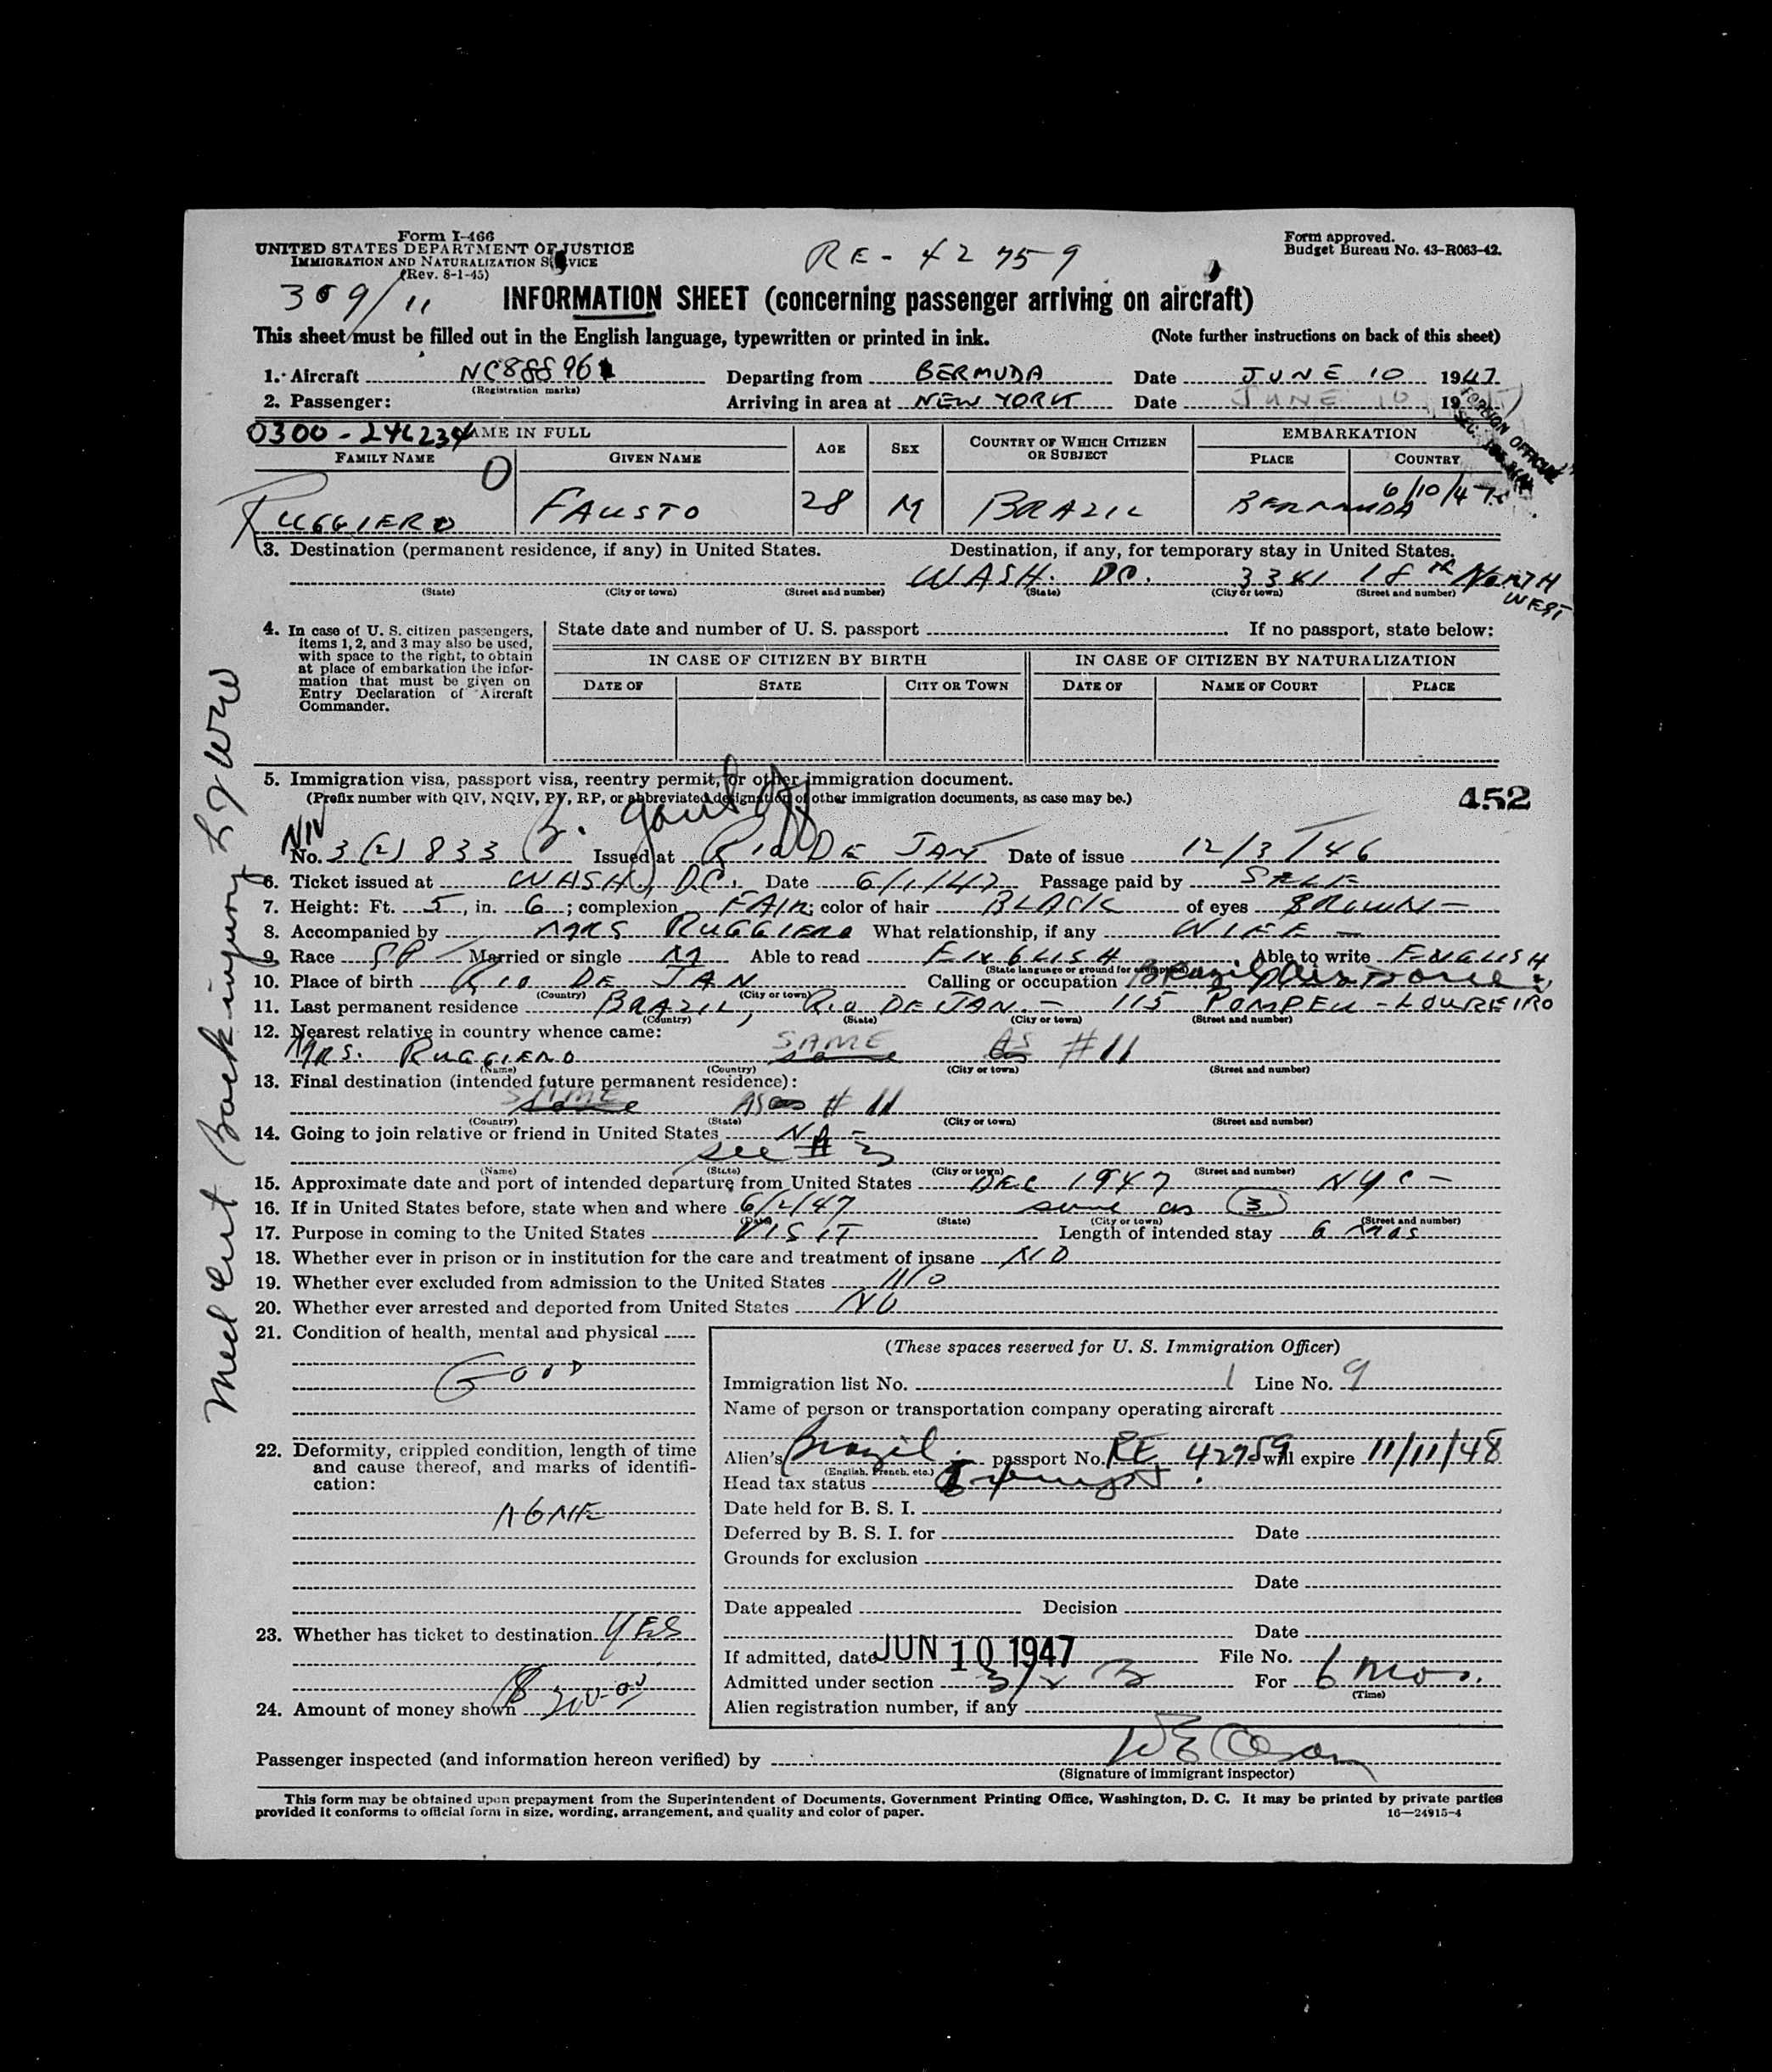 Form I-466
UNITED STATES DEPARTMENT OF JUSTICE
IMMIGRATION AND NATURALIZATION SERVICE
(Rev. 8-1-45)
RE-42759
Form approved.
Budget Bureau No. 43-R063-42.
309/11
INFORMATION SHEET (concerning passenger arriving on aircraft)
This sheet must be filled out in the English language, typewritten or printed in ink. (Note further instructions on back of this sheet)
1. Aircraft NC88896 Departing from BERMUDA Date JUNE 10 1947
(Registration marks)
2. Passenger: Arriving in area at NEW YORK Date JUNE 10 19
FOREIGN OFFICIAL
0300-246234 NAME IN FULL AGE SEX COUNTRY OF WHICH CITIZEN OR SUBJECT EMBARKATION
FAMILY NAME GIVEN NAME PLACE COUNTRY
6/10/47
RUGGIERO FAUSTO 28 M BRAZIL BERMUDA
3. Destination (permanent residence, if any) in United States. Destination, if any, for temporary stay in United States.
WASH. DC. 3341 18th NORTH WEST
(State) (City or town) (Street and number) (State) (City or town) (Street and number)
4. In case of U. S. citizen passengers, items 1, 2, and 3 may also be used, with space to the right, to obtain at place of embarkation the information that must be given on Entry Declaration of Aircraft Commander.
State date and number of U. S. passport If no passport, state below:
IN CASE OF CITIZEN BY BIRTH IN CASE OF CITIZEN BY NATURALIZATION
DATE OF STATE CITY OR TOWN DATE OF NAME OF COURT PLACE
5. Immigration visa, passport visa, reentry permit, or other immigration document.
(Prefix number with QIV, NQIV, PV, RP, or abbreviated designation of other immigration documents, as case may be.)
452
NIV
No. 3(2) 833 Issued at RIO DE JAN Date of issue 12/3/46
6. Ticket issued at WASH, DC. Date 6/1/47 Passage paid by SELF
7. Height: Ft. 5, in. 6; complexion FAIR; color of hair BLACK of eyes BROWN-
8. Accompanied by MRS RUGGIERO What relationship, if any WIFE -
9. Race SP Married or single M Able to read ENGLISH Able to write ENGLISH
(State language or ground for exemption)
10. Place of birth RIO DE JAN Calling or occupation
(Country) (City or town)
11. Last permanent residence BRAZIL, RIO DE JAN. - 115 POMPEU-LOUREIRO
(Country) (State) (City or town) (Street and number)
12. Nearest relative in country whence came:
MRS. RUGGIERO SAME AS #11
(Name) (Country) (City or town) (Street and number)
13. Final destination (intended future permanent residence):
SAME AS #11
(Country) (State) (City or town) (Street and number)
14. Going to join relative or friend in United States NA-
see # 3
(Name) (State) (City or town) (Street and number)
15. Approximate date and port of intended departure from United States DEC 1947 NYC-
16. If in United States before, state when and where 6/2/47 same as 3
(Date) (State) (City or town) (Street and number)
17. Purpose in coming to the United States VISIT Length of intended stay 6 mos
18. Whether ever in prison or in institution for the care and treatment of insane NO
19. Whether ever excluded from admission to the United States NO
20. Whether ever arrested and deported from United States NO
21. Condition of health, mental and physical
GOOD
22. Deformity, crippled condition, length of time and cause thereof, and marks of identification:
NONE
23. Whether has ticket to destination YES
24. Amount of money shown $ 200.00
(These spaces reserved for U. S. Immigration Officer)
Immigration list No. 1 Line No. 9
Name of person or transportation company operating aircraft
Alien's Brazil. passport No. RE 42759 will expire 11/11/48
(English, French, etc.)
Head tax status Exempt.
Date held for B. S. I.
Deferred by B. S. I. for Date
Grounds for exclusion
Date
Date appealed Decision
Date
If admitted, date JUN 10 1947 File No.
Admitted under section 3/2 B For 6 mos.
(Time)
Alien registration number, if any
Passenger inspected (and information hereon verified) by
(Signature of immigrant inspector)
This form may be obtained upon prepayment from the Superintendent of Documents, Government Printing Office, Washington, D. C. It may be printed by private parties
provided it conforms to official form in size, wording, arrangement, and quality and color of paper. 16—24915-4
Med Cert Back injury